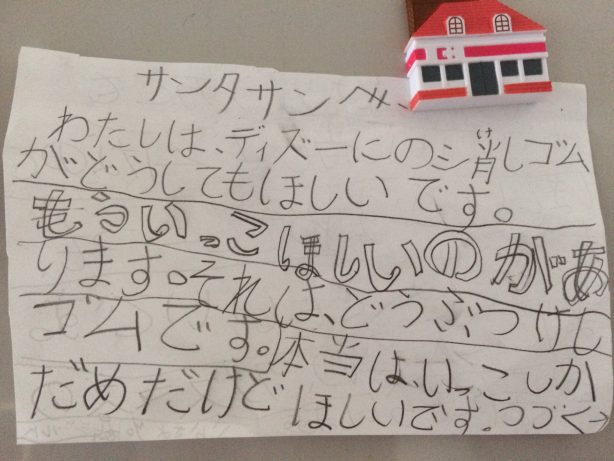 サンタサンへ
け
わたしは、ディズーにの消しゴム
がどうしてもほしいです。
もういっこほしいのがあ
ります。それは、どうぶつけし
ゴムです。体当は、いっこしか
だめだけどほしいです。つづく